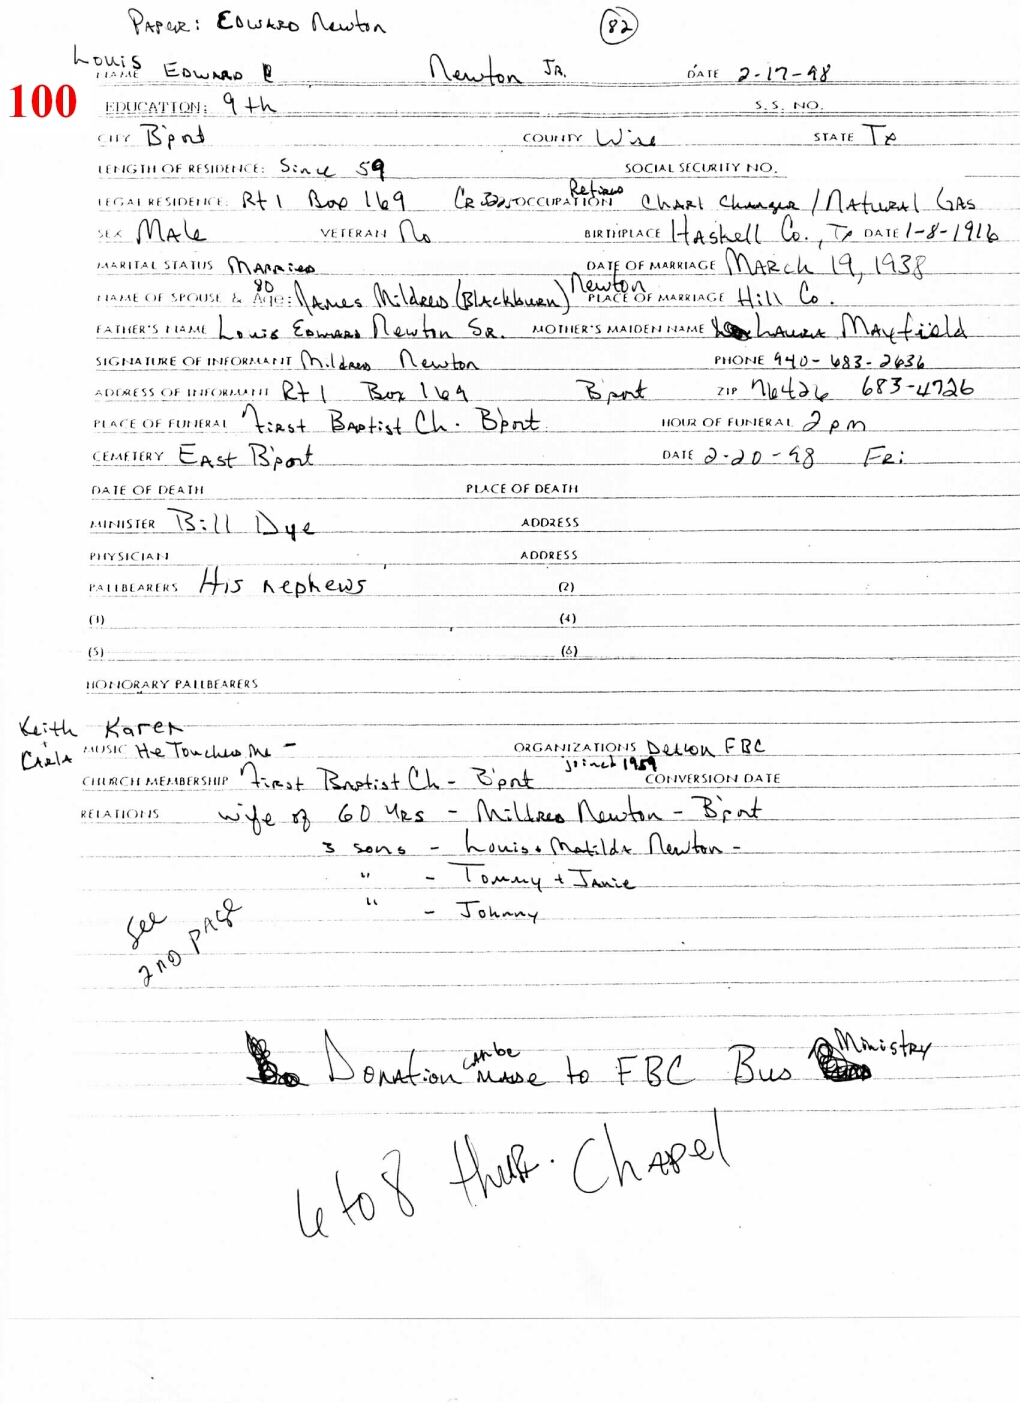 PAPER: EDWARD Newton 82
Louis
NAME EDWARD Newton JR. DATE 2-17-98
100 EDUCATION: 9th S.S. NO.
CITY B'port COUNTY Wise STATE Tx
LENGTH OF RESIDENCE: Since 59 SOCIAL SECURITY NO.
LEGAL RESIDENCE: Rt 1 Box 169 OCCUPATION Retired Chart Changer / Natural Gas
SEX Male VETERAN No BIRTHPLACE Haskell Co., Tx DATE 1-8-1916
MARITAL STATUS Married DATE OF MARRIAGE March 19, 1938
NAME OF SPOUSE & Age: 80 James Mildred (Blackburn) Newton PLACE OF MARRIAGE Hill Co.
FATHER'S NAME Louis Edward Newton Sr. MOTHER'S MAIDEN NAME Laura Mayfield
SIGNATURE OF INFORMANT Mildred Newton PHONE 940-683-2636
ADDRESS OF INFORMANT Rt 1 Box 169 B'port ZIP 76426 683-4726
PLACE OF FUNERAL First Baptist Ch. B'port HOUR OF FUNERAL 2 pm
CEMETERY East B'port DATE 2-20-98 Fri
DATE OF DEATH PLACE OF DEATH
MINISTER Bill Dye ADDRESS
PHYSICIAN ADDRESS
PALLBEARERS His nephews (2)
(3) (4)
(5) (6)
HONORARY PALLBEARERS
Keith Karen
Carla MUSIC He Touched Me - ORGANIZATIONS Deacon FBC
CHURCH MEMBERSHIP First Baptist Ch - B'port joined 1959 CONVERSION DATE
RELATIONS wife of 60 yrs - Mildred Newton - B'port
3 sons - Louis + Matilda Newton -
" - Tommy + Janie
" - Johnny
See
2nd page
Donation can be made to FBC Bus Ministry
6 to 8 thur. Chapel